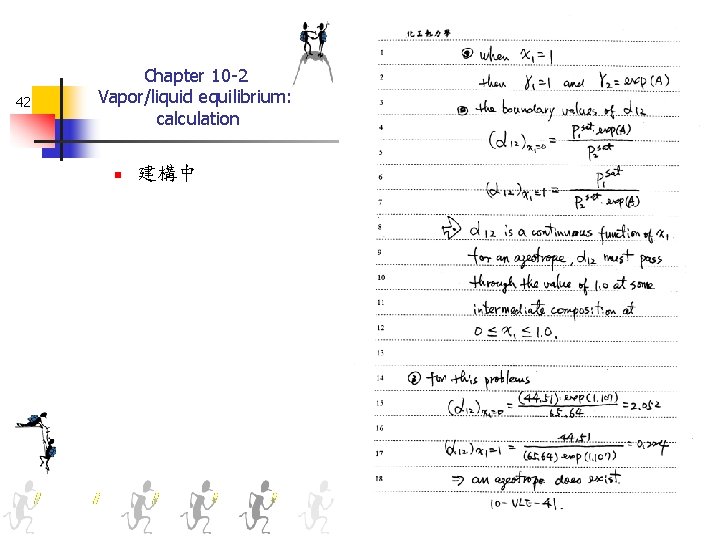 42
Chapter 10-2
Vapor/liquid equilibrium:
calculation
建構中
化工熱力學
1 ⊙ when x₁=1
2 then γ₁=1 and γ₂=exp(A)
3 ⊙ the boundary values of α12
4 (α12)x₁=0 = P₁sat exp(A)
5 P₂sat
6 (α12)x₁=1 = P₁sat
7 P₂sat exp(A)
8 ⇒ α12 is a continuous function of x₁
9 for an azeotrope, α12 must pass
10 through the value of 1.0 at some
11 intermediate composition at
12 0 ≤ x₁ ≤ 1.0.
13
14 for this problems
15 (α12)x₁=0 = (44.51) exp(1.107) / 65.64 = 2.052
16
17 (α12)x₁=1 = 44.51 / (65.64) exp(1.107) = 0.224
18 ⇒ an azeotrope does exist.
10-VLE-41.